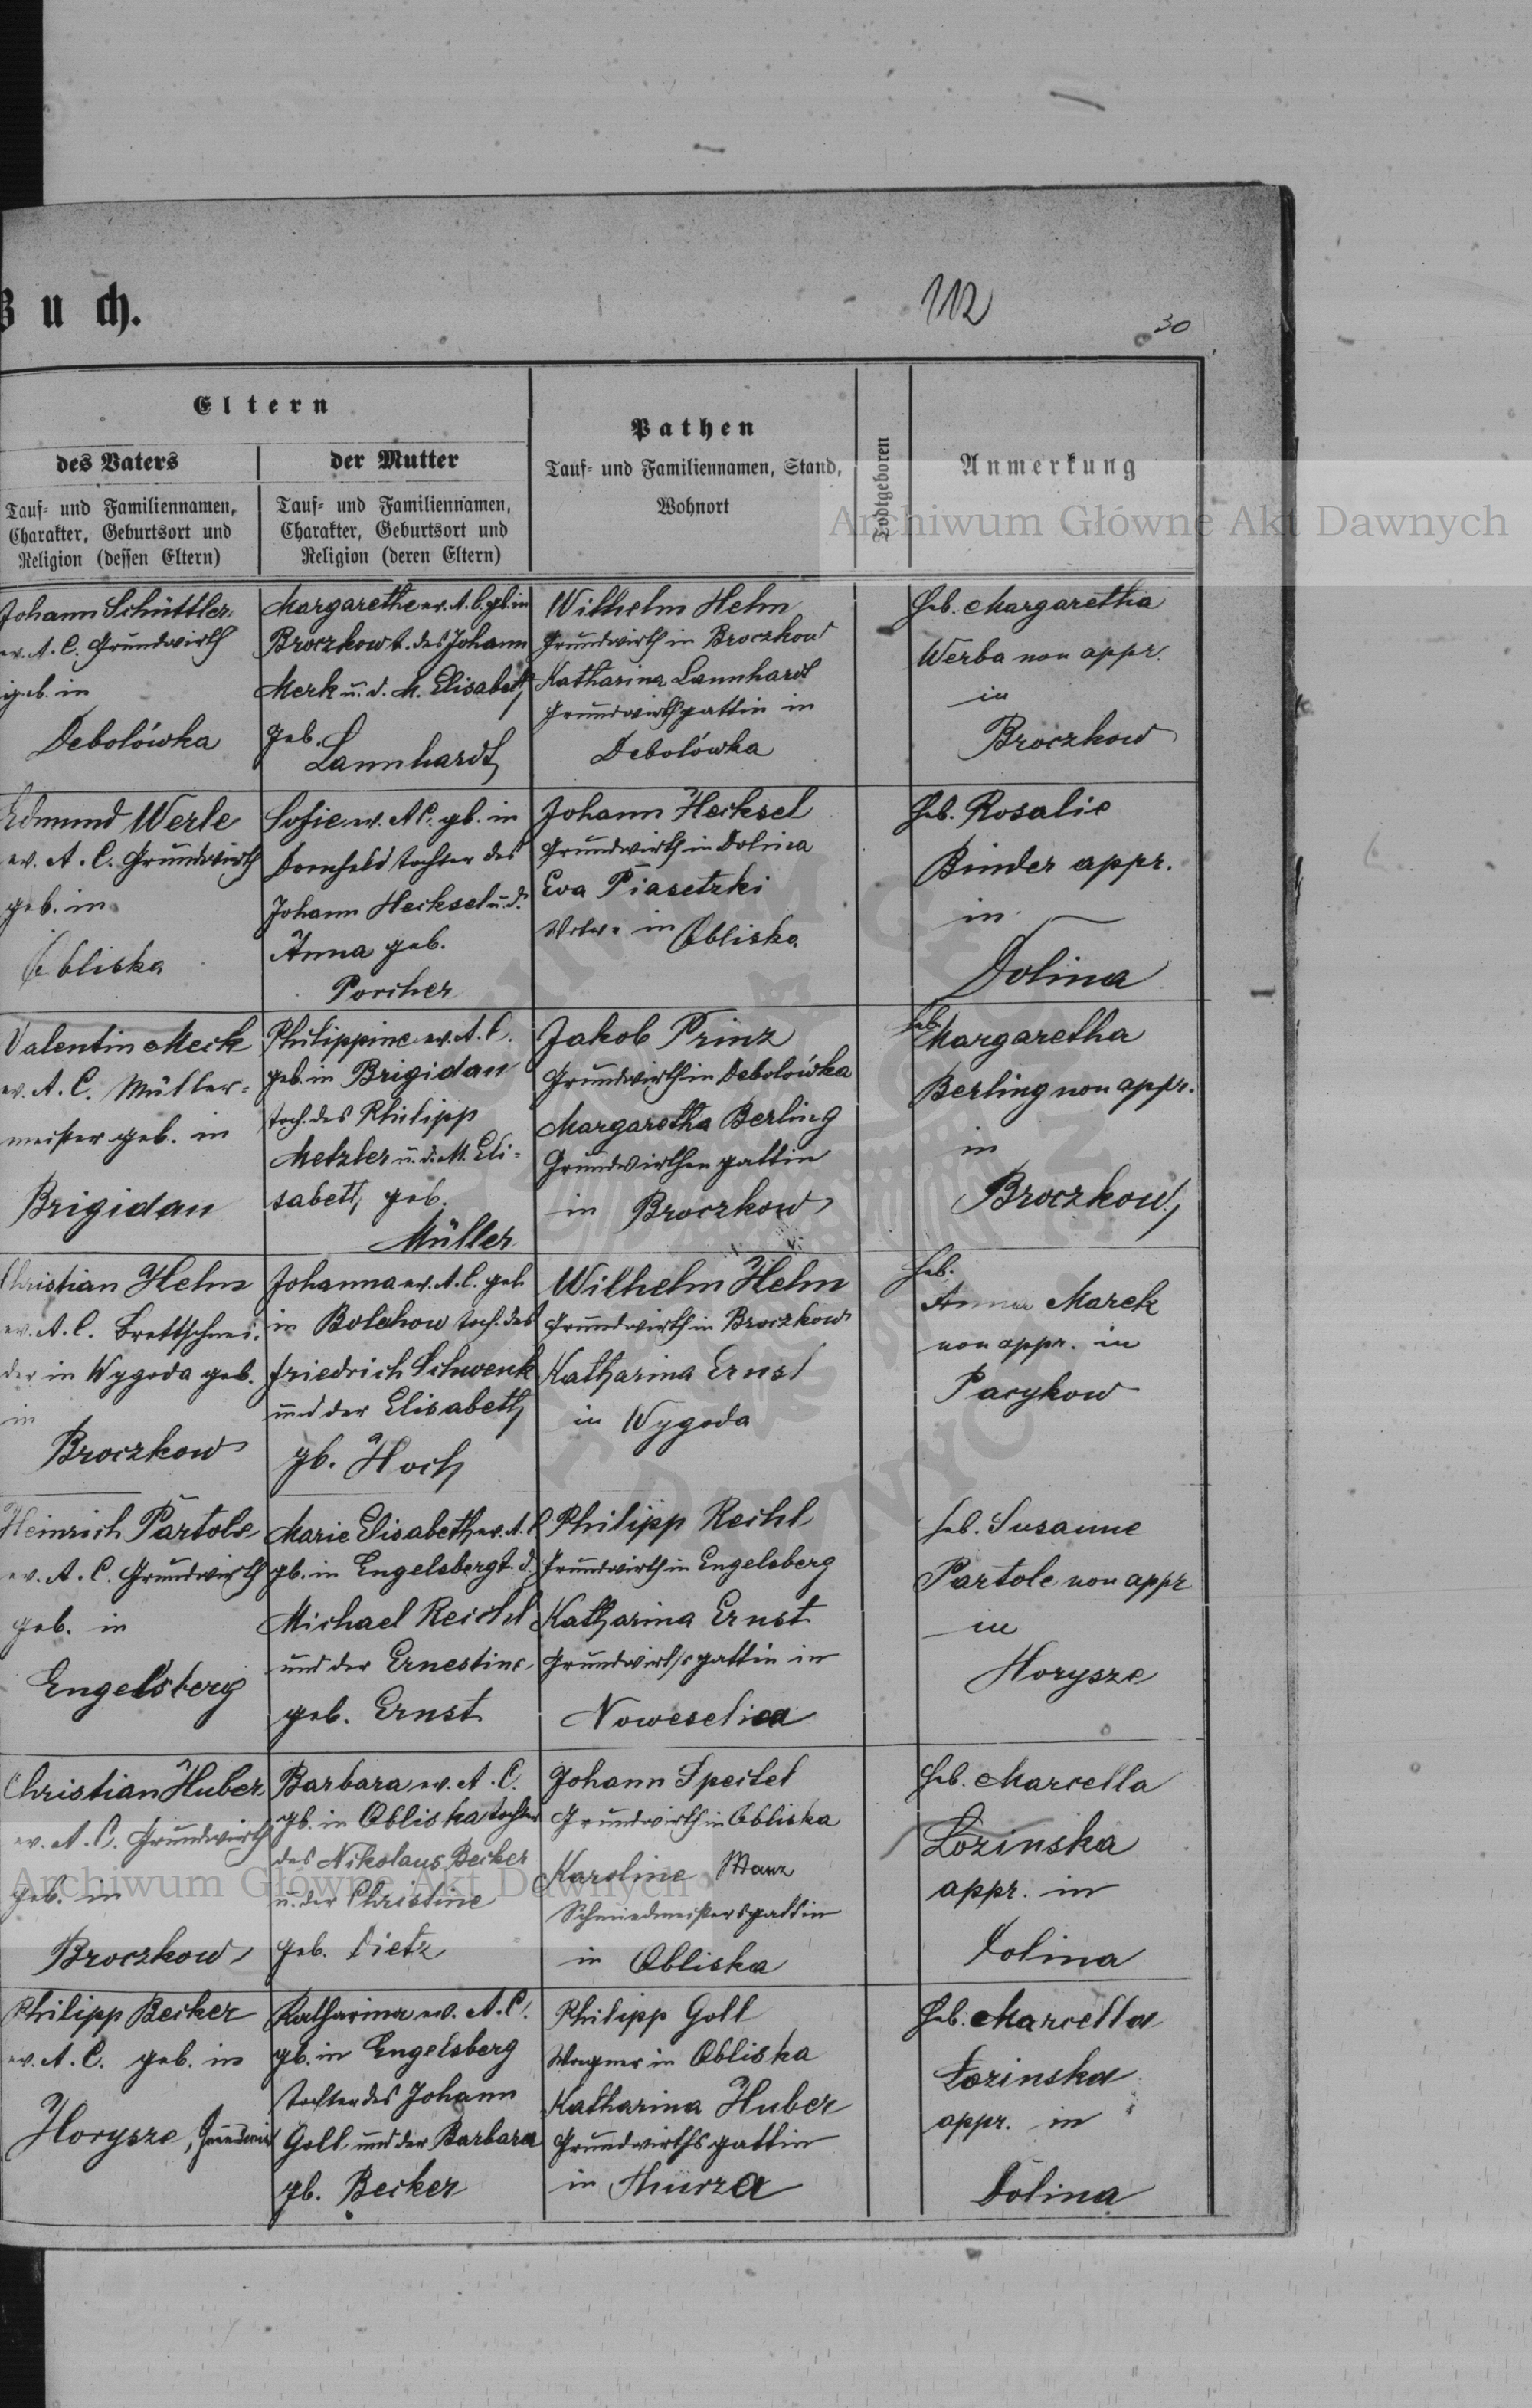 Buch.
112
30
Eltern
des Vaters
Tauf- und Familiennamen,
Charakter, Geburtsort und
Religion (dessen Eltern)
der Mutter
Tauf- und Familiennamen,
Charakter, Geburtsort und
Religion (deren Eltern)
Pathen
Tauf- und Familiennamen, Stand,
Wohnort
Todtgeboren
Anmerkung
Archiwum Główne Akt Dawnych
Johann Schüttler
ev. A. C. Grundwirth
geb. in
Debolówka
Margarethe ev. A. C. gb. in
Broczkow t. des Johann
Merk u. d. M. Elisabeth
geb.
Lannhardt
Wilhelm Helm
Grundwirth in Broczkow
Katharina Lannhardt
Grundwirthsgattin in
Debolówka
Heb. Margaretha
Werba non appr.
in
Broczkow
Edmund Werle
ev. A. C. Grundwirth
geb. in
Obliska
Sofie ev. AC. gb. in
Dornfeld tochter des
Johann Hecksel u. d.
Anna geb.
Porcher
Johann Hecksel
Grundwirth in Dolina
Eva Piasetzki
in Obliska
Heb. Rosalie
Binder appr.
in
Dolina
Valentin Meck
ev. A. C. Müller-
meister geb. in
Brigidau
Philippine ev. A. C.
geb. in Brigidau
toch. des Philipp
Metzler u. d. M. Eli-
sabeth geb.
Müller
Jakob Prinz
Grundwirth in Debolówka
Margaretha Berling
Grundwirthen gattin
in Broczkow
Heb.
Margaretha
Berling non appr.
in
Broczkow
Christian Helm
ev. A. C. Brettschnei-
der in Wygoda geb.
in
Broczkow
Johanna ev. A. C. geb
in Bolechow toch. des
Friedrich Schwenk
und der Elisabeth
gb. Hoch
Wilhelm Helm
Grundwirth in Broczkow
Katharina Ernst
in Wygoda
Heb.
Anna Marek
non appr. in
Pacykow
Heinrich Partole
ev. A. C. Grundwirth
geb. in
Engelsberg
Marie Elisabeth ev. A. C
gb. in Engelsberg t. d.
Michael Reichl
und der Ernestine
geb. Ernst
Philipp Rechl
Grundwirth in Engelsberg
Katharina Ernst
Grundwirthsgattin in
Noweselica
Heb. Susanne
Partole non appr
in
Horysze
Christian Huber
ev. A. C. Grundwirth
geb. in
Broczkow
Barbara ev. A. C.
gb. in Obliska tochter
des Nikolaus Becker
u. der Christine
geb. Dietz
Johann Spechel
Grundwirth in Obliska
Karoline Manz
Schmiedmeistersgattin
in Obliska
Heb. Marcella
Lozinska
appr. in
Dolina
Archiwum Główne Akt Dawnych
Philipp Becker
ev. A. C. geb. in
Horysze, Grundwirth
Katharina ev. A. C.
gb. in Engelsberg
tochter des Johann
Goll und der Barbara
gb. Becker
Philipp Goll
Wagner in Obliska
Katharina Huber
Grundwirthsgattin
in Thurza
Heb. Marcella
Lozinska
appr. in
Dolina